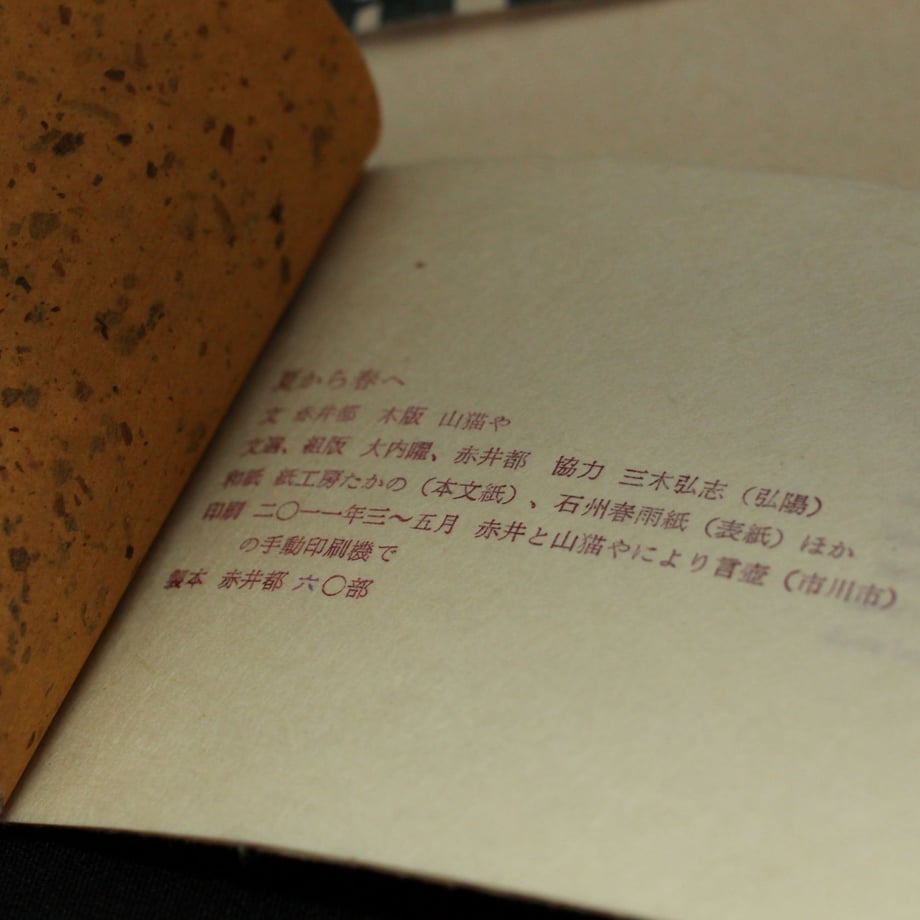 夏から春へ
文 赤井都 木版 山猫や
文選、組版 大内曜、赤井都 協力 三木弘志（弘陽）
和紙 紙工房たかの（本文紙）、石州春雨紙（表紙）ほか
印刷 二〇一一年三〜五月 赤井と山猫やにより言壺（市川市）
の手動印刷機で
製本 赤井都 六〇部